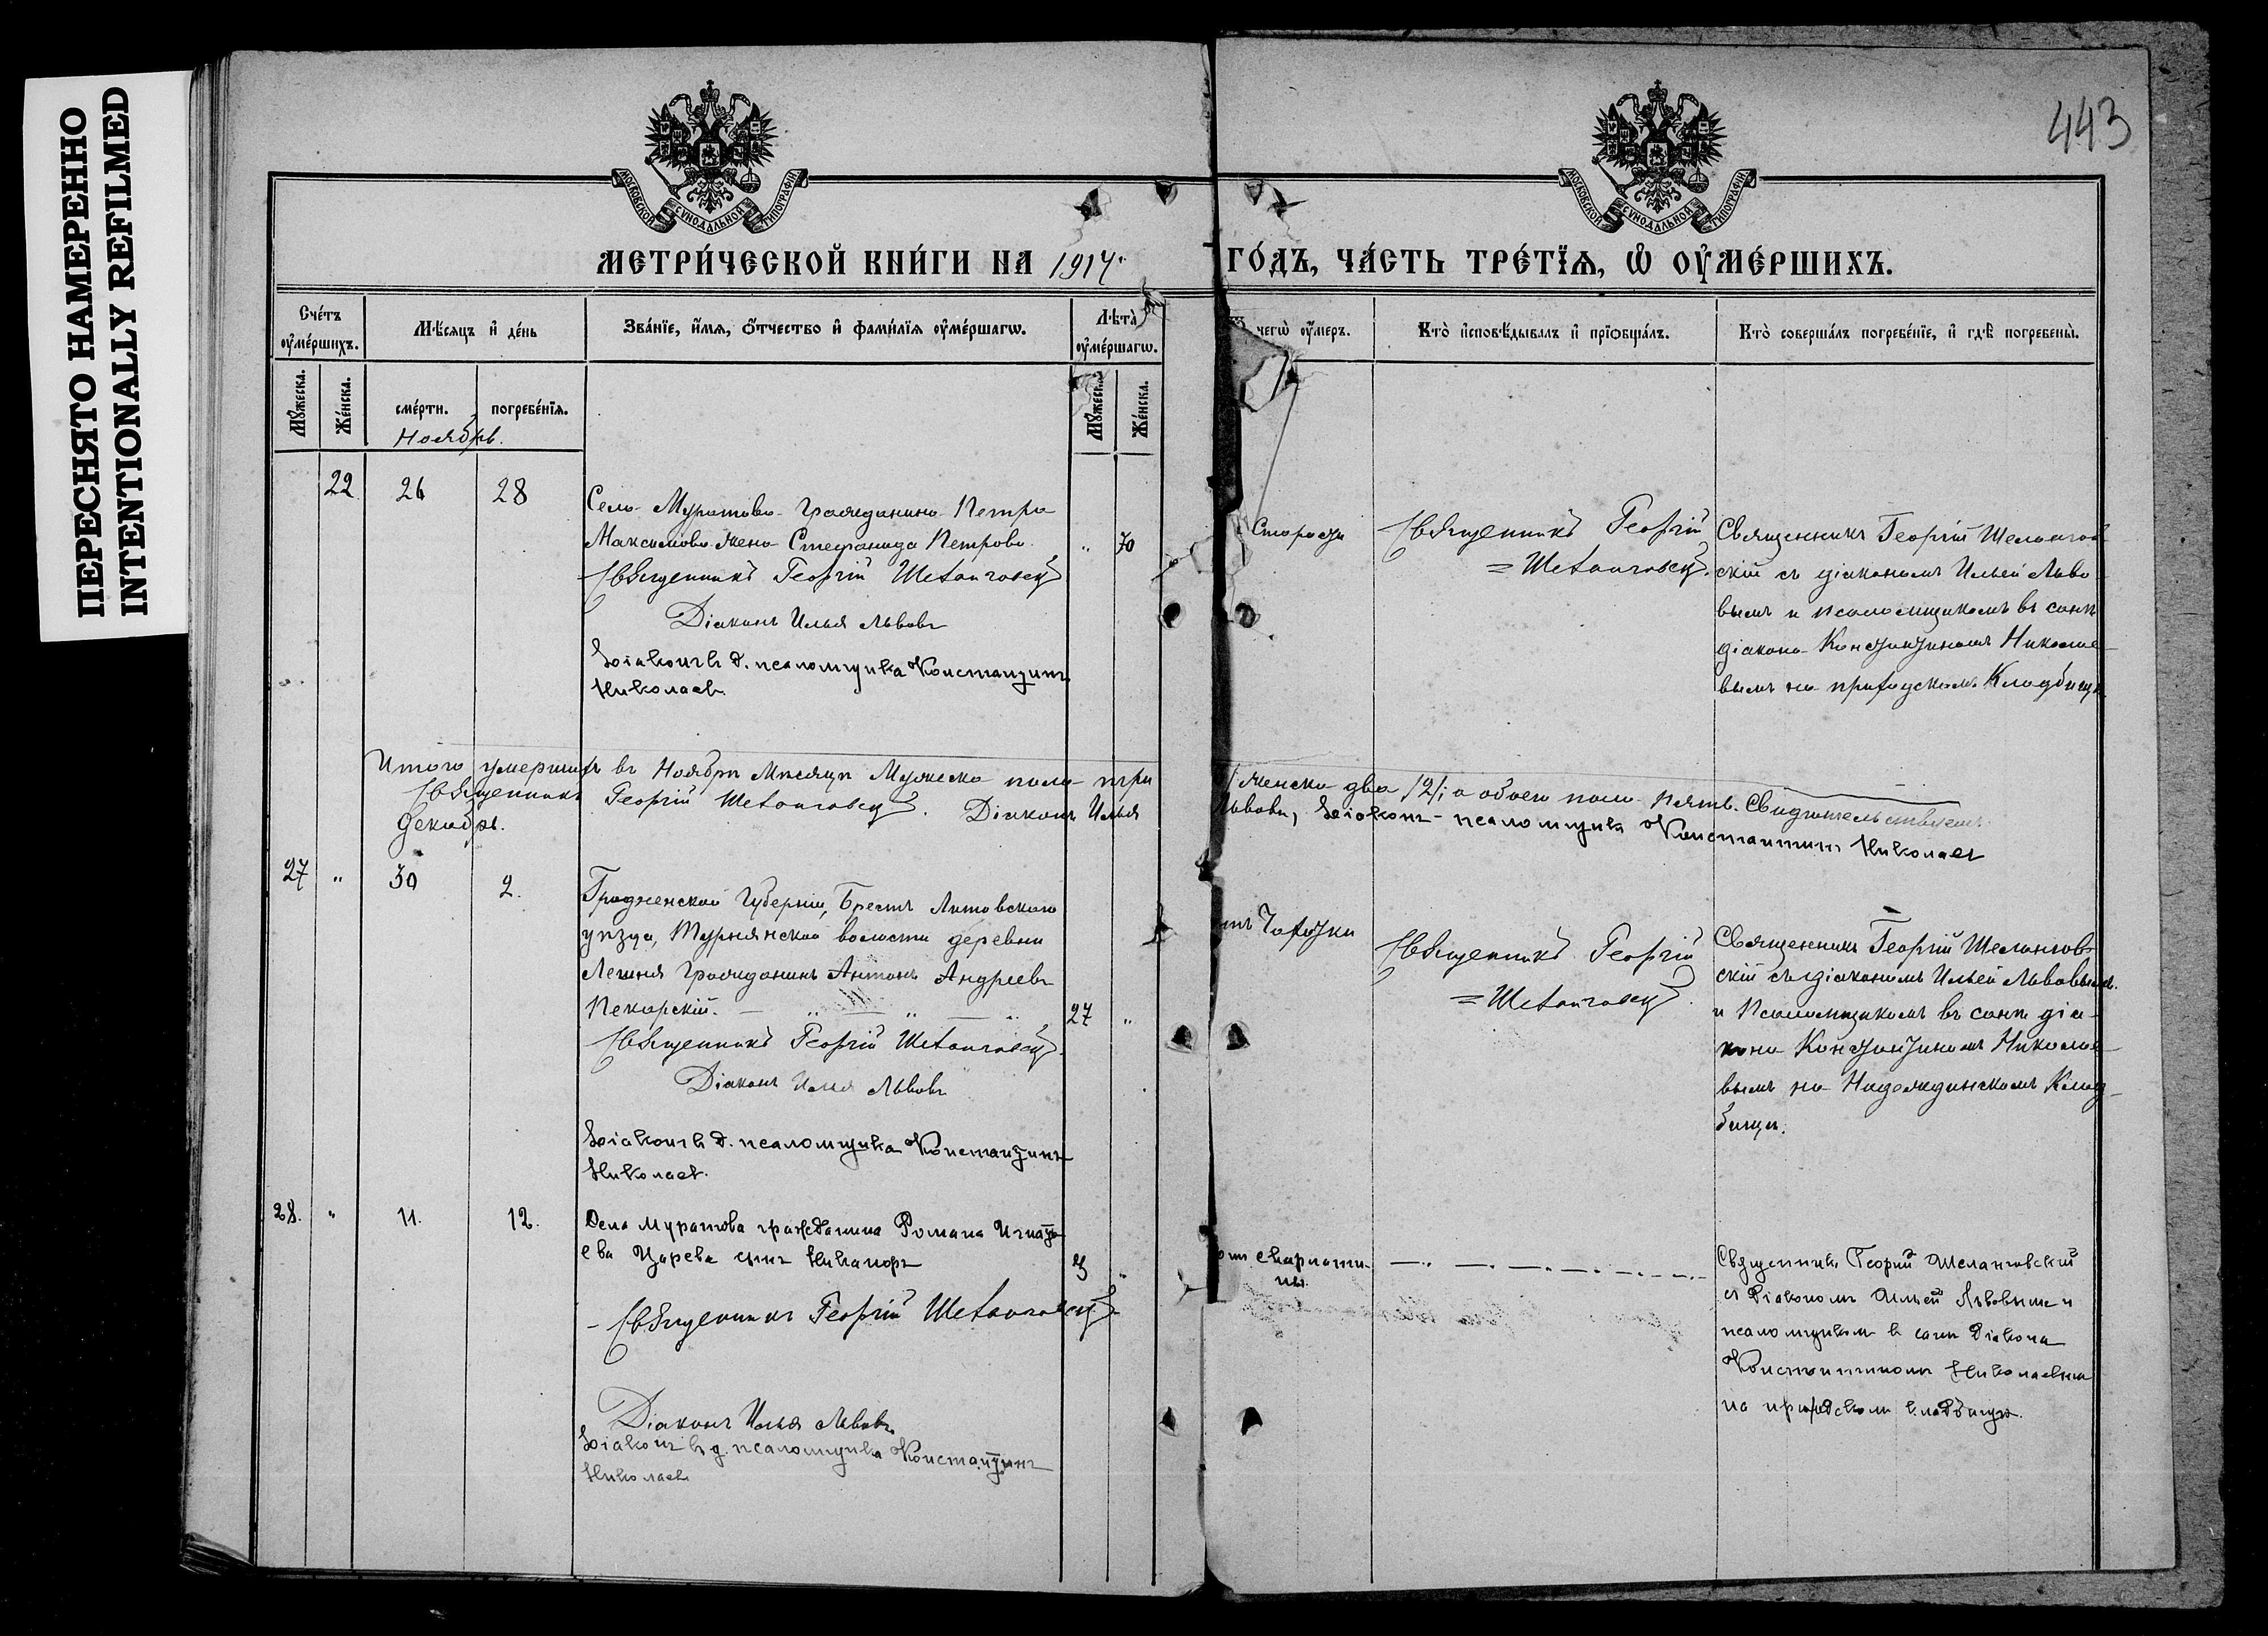 ПЕРЕСНЯТО НАМЕРЕННО
INTENTIONALLY REFILMED
443
МОСКОВСКОЙ СѴНОДАЛЬНОЙ ТИПОГРАФІИ
МОСКОВСКОЙ СѴНОДАЛЬНОЙ ТИПОГРАФІИ
МЕТРИ́ЧЕСКОЙ КНИ́ГИ НА 1917
ГО́ДЪ, ЧА́СТЬ ТРЕ́ТЇѦ, Ѽ ОУ҆МЕ́РШИХЪ.
Сче́тъ оу҆ме́ршихъ.
Мѣ́сяцъ и҆ де́нь
Зва́нїе, и҆́мѧ, ѻ҆́тчество и҆ фами́лїѧ оу҆ме́ршагѡ.
Лѣта̀ оу҆ме́ршагѡ.
чегѡ̀ оу҆́меръ.
Кто̀ и҆сповѣ́дывалъ и҆ прїѡбща́лъ.
Кто̀ соверша́лъ погребе́нїе, и҆ гдѣ̀ погребены̀.
Мꙋ́жеска.
Же́нска.
сме́рти.
погребе́нїѧ.
Мꙋ́жеска.
Же́нска.
Ноябрь.
22 26 28
Село Муратово гражданина Петра
Максимова жена Стефанида Петрова „ 70
Священникъ Георгій Шеланговскій
Діаконъ Илья Львовъ
Діаконъ в д. псаломщика Константинъ
Николаевъ.
Старости
Священникъ Георгій
= Шеланговскій.
Священникъ Георгій Шелангов
скій съ діакономъ Ильей Льво
вымъ и псаломщикомъ въ санѣ
діакона Константиномъ Николае-
вымъ на приходскомъ Кладбищѣ
Итого умершихъ въ Ноябрѣ Мѣсяцѣ Мужеска пола три
женска два /2/; а обоего пола пять. Свидѣтельствуемъ:
Священникъ Георгій Шеланговскій. Діаконъ Илья
Львовъ, Діаконъ-псаломщикъ Константинъ Николаев
Декабрь.
27 „ 30 2.
Гродненской Губерніи, Брестъ Литовскаго
уѣзда, Турнянской волости деревни
гражданинъ Антонъ Андреевъ
Пекарскій. 27 „
Священникъ Георгій Шеланговскій.
Діаконъ Илья Львовъ
Діаконъ в д. псаломщика Константинъ
Николаев.
отъ Чахотки
Священникъ Георгій
= Шеланговскій.
Священникъ Георгій Шелангов
скій съ діакономъ Ильей Львовымъ
и Псаломщикомъ въ санѣ діа-
кона Константиномъ Николае-
вымъ на Надеждинскомъ Клад-
бищѣ.
28. „ 11. 12.
Села Муратова гражданина Романа Игнать-
ева Царева сынъ Никаноръ 3 „
Священникъ Георгій Шеланговскій
Діаконъ Илья Львовъ
Діаконъ в д. псаломщика Константинъ
Николаев
от скарлати-
ны.
Священникъ Георгій Шеланговскій
съ діакономъ Ильей Львовымъ и
псаломщиком в санѣ діакона
Константиномъ Николаевым
на приходском кладбищѣ.